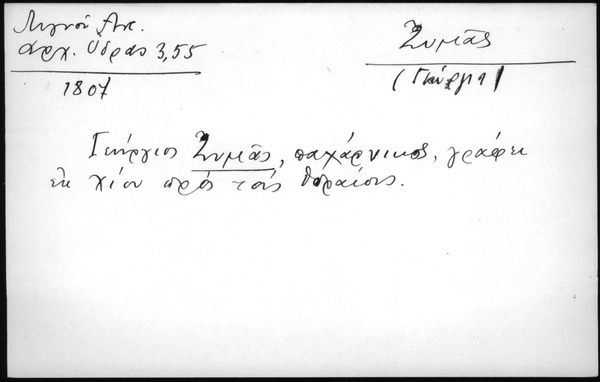 Λιγνού Αντ.
Αρχ. Ύδρας 3,55
1807
Ζυμᾶς
(Γεώργιος)
Γεώργιος Ζυμᾶς, παχάρνικος, γράφει
ἐκ Χίου πρός τούς Υδραίους.